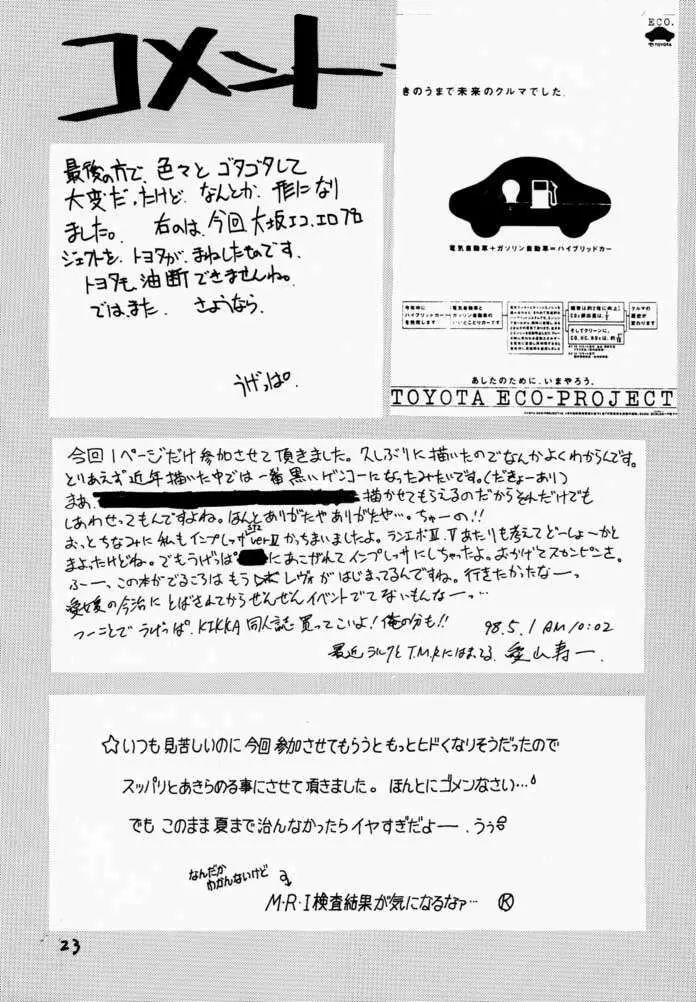 コメント
最後の方で、色々とゴタゴタして
大変だったけど、なんとか、形になり
ました。 右のは、今回大坂エコ、エロプロ
ジェクトを、トヨタが、まねしたものです。
トヨタも油断できませんね。
では、また さようなら。
うげっぱ。
ECO.
TOYOTA
きのうまで未来のクルマでした。
電気自動車+ガソリン自動車=ハイブリッドカー
今年中に
ハイブリッドカー
を発売します
電気自動車と
ガソリン自動車の
いいとこどりカーです
燃費は約2倍に向上、
CO2排出量は、1/2
そしてクリーンに。
CO, HC, NOxは、約1/10
クルマの
歴史が
変わります
あしたのために、いまやろう。
TOYOTA ECO-PROJECT
今回1ページだけ参加させて頂きました。久しぶりに描いたのでなんかよくわからんです。
とりあえず近年描いた中では一番黒いゲンコーになったみたいです。(だきょーあり)
まあ、 描かせてもらえるのだからそれだけでも
しあわせってもんですよね。ほんとありがたやありがたや…。ちゅーの!!
おっとちなみに私もインプレッサSTi verⅣかっちまいましたよ。ランエボⅣ.Ⅴあたりも考えてどーしょーかと
まよったけどね。でもうげっぱ にあこがれてインプレッサにしちゃったよ。おかげでスカンピンさ。
ふー、この本がでるころはもうレヴォがはじまってるんですね。行きたかったなーっ
愛媛の今治にとばされてからぜんぜんイベントでてないもんなーっ…
つーことでうげっぱ、KIKKA同人誌買ってこいよ!俺の分も!!
98.5.1 AM10:02
最近ラルクとT.M.Rにはまってる 愛山寿一
☆いつも見苦しいのに今回参加させてもらうともっとヒドくなりそうだったので
スッパリとあきらめる事にさせて頂きました。ほんとにゴメンなさい…
でも このまま夏まで治んなかったらイヤすぎだよー.うぅ
なんだか
わかんないけど
M・R・I検査結果が気になるなァ… Ⓚ
23